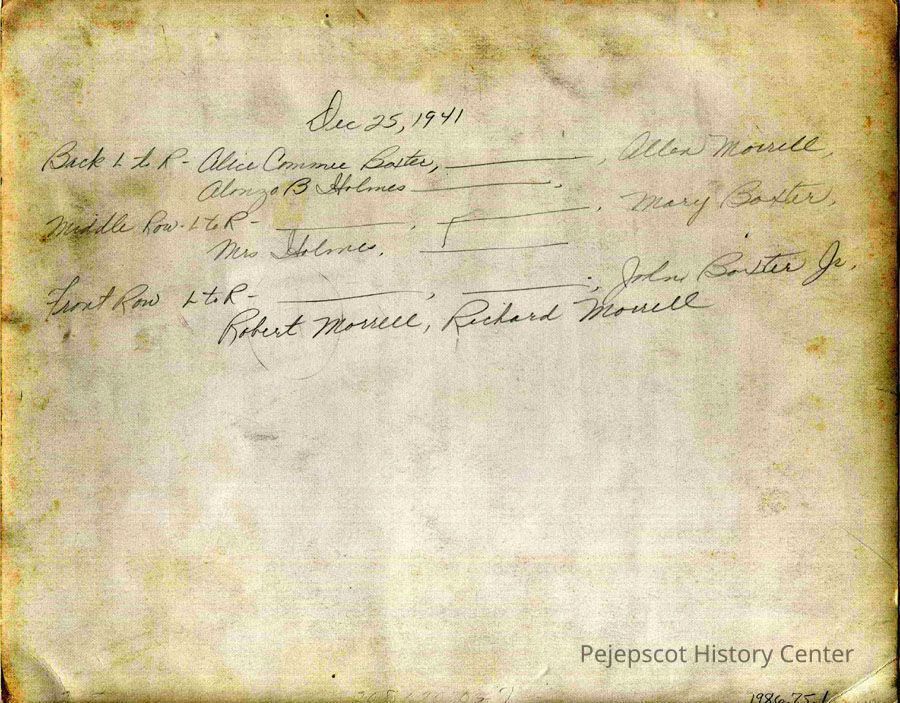 Dec 25, 1941
Back L to R - Alice Commee Baxter, ________, Allen Morrell,
Alonzo B Holmes ________.
Middle Row - L to R - ________, ________, Mary Baxter,
Mrs Holmes, ________
Front Row L to R - ________, ________, John Baxter Jr.
Robert Morrell, Richard Morrell
Pejepscot History Center
1986.75.1